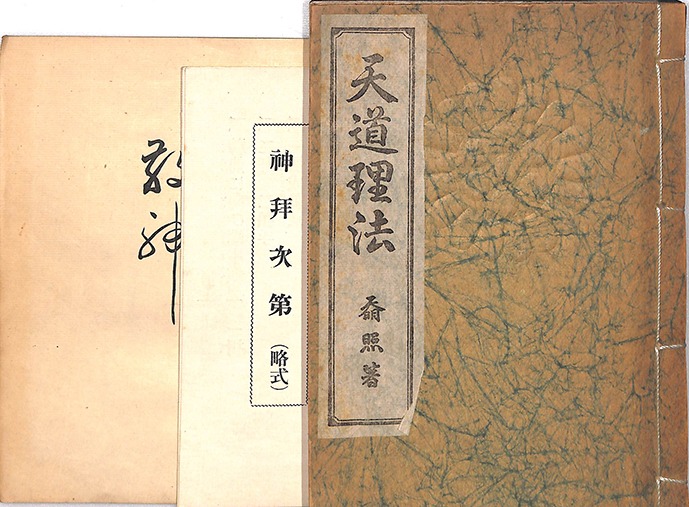 天道理法
斎照著
神拝次第(略式)
敬神